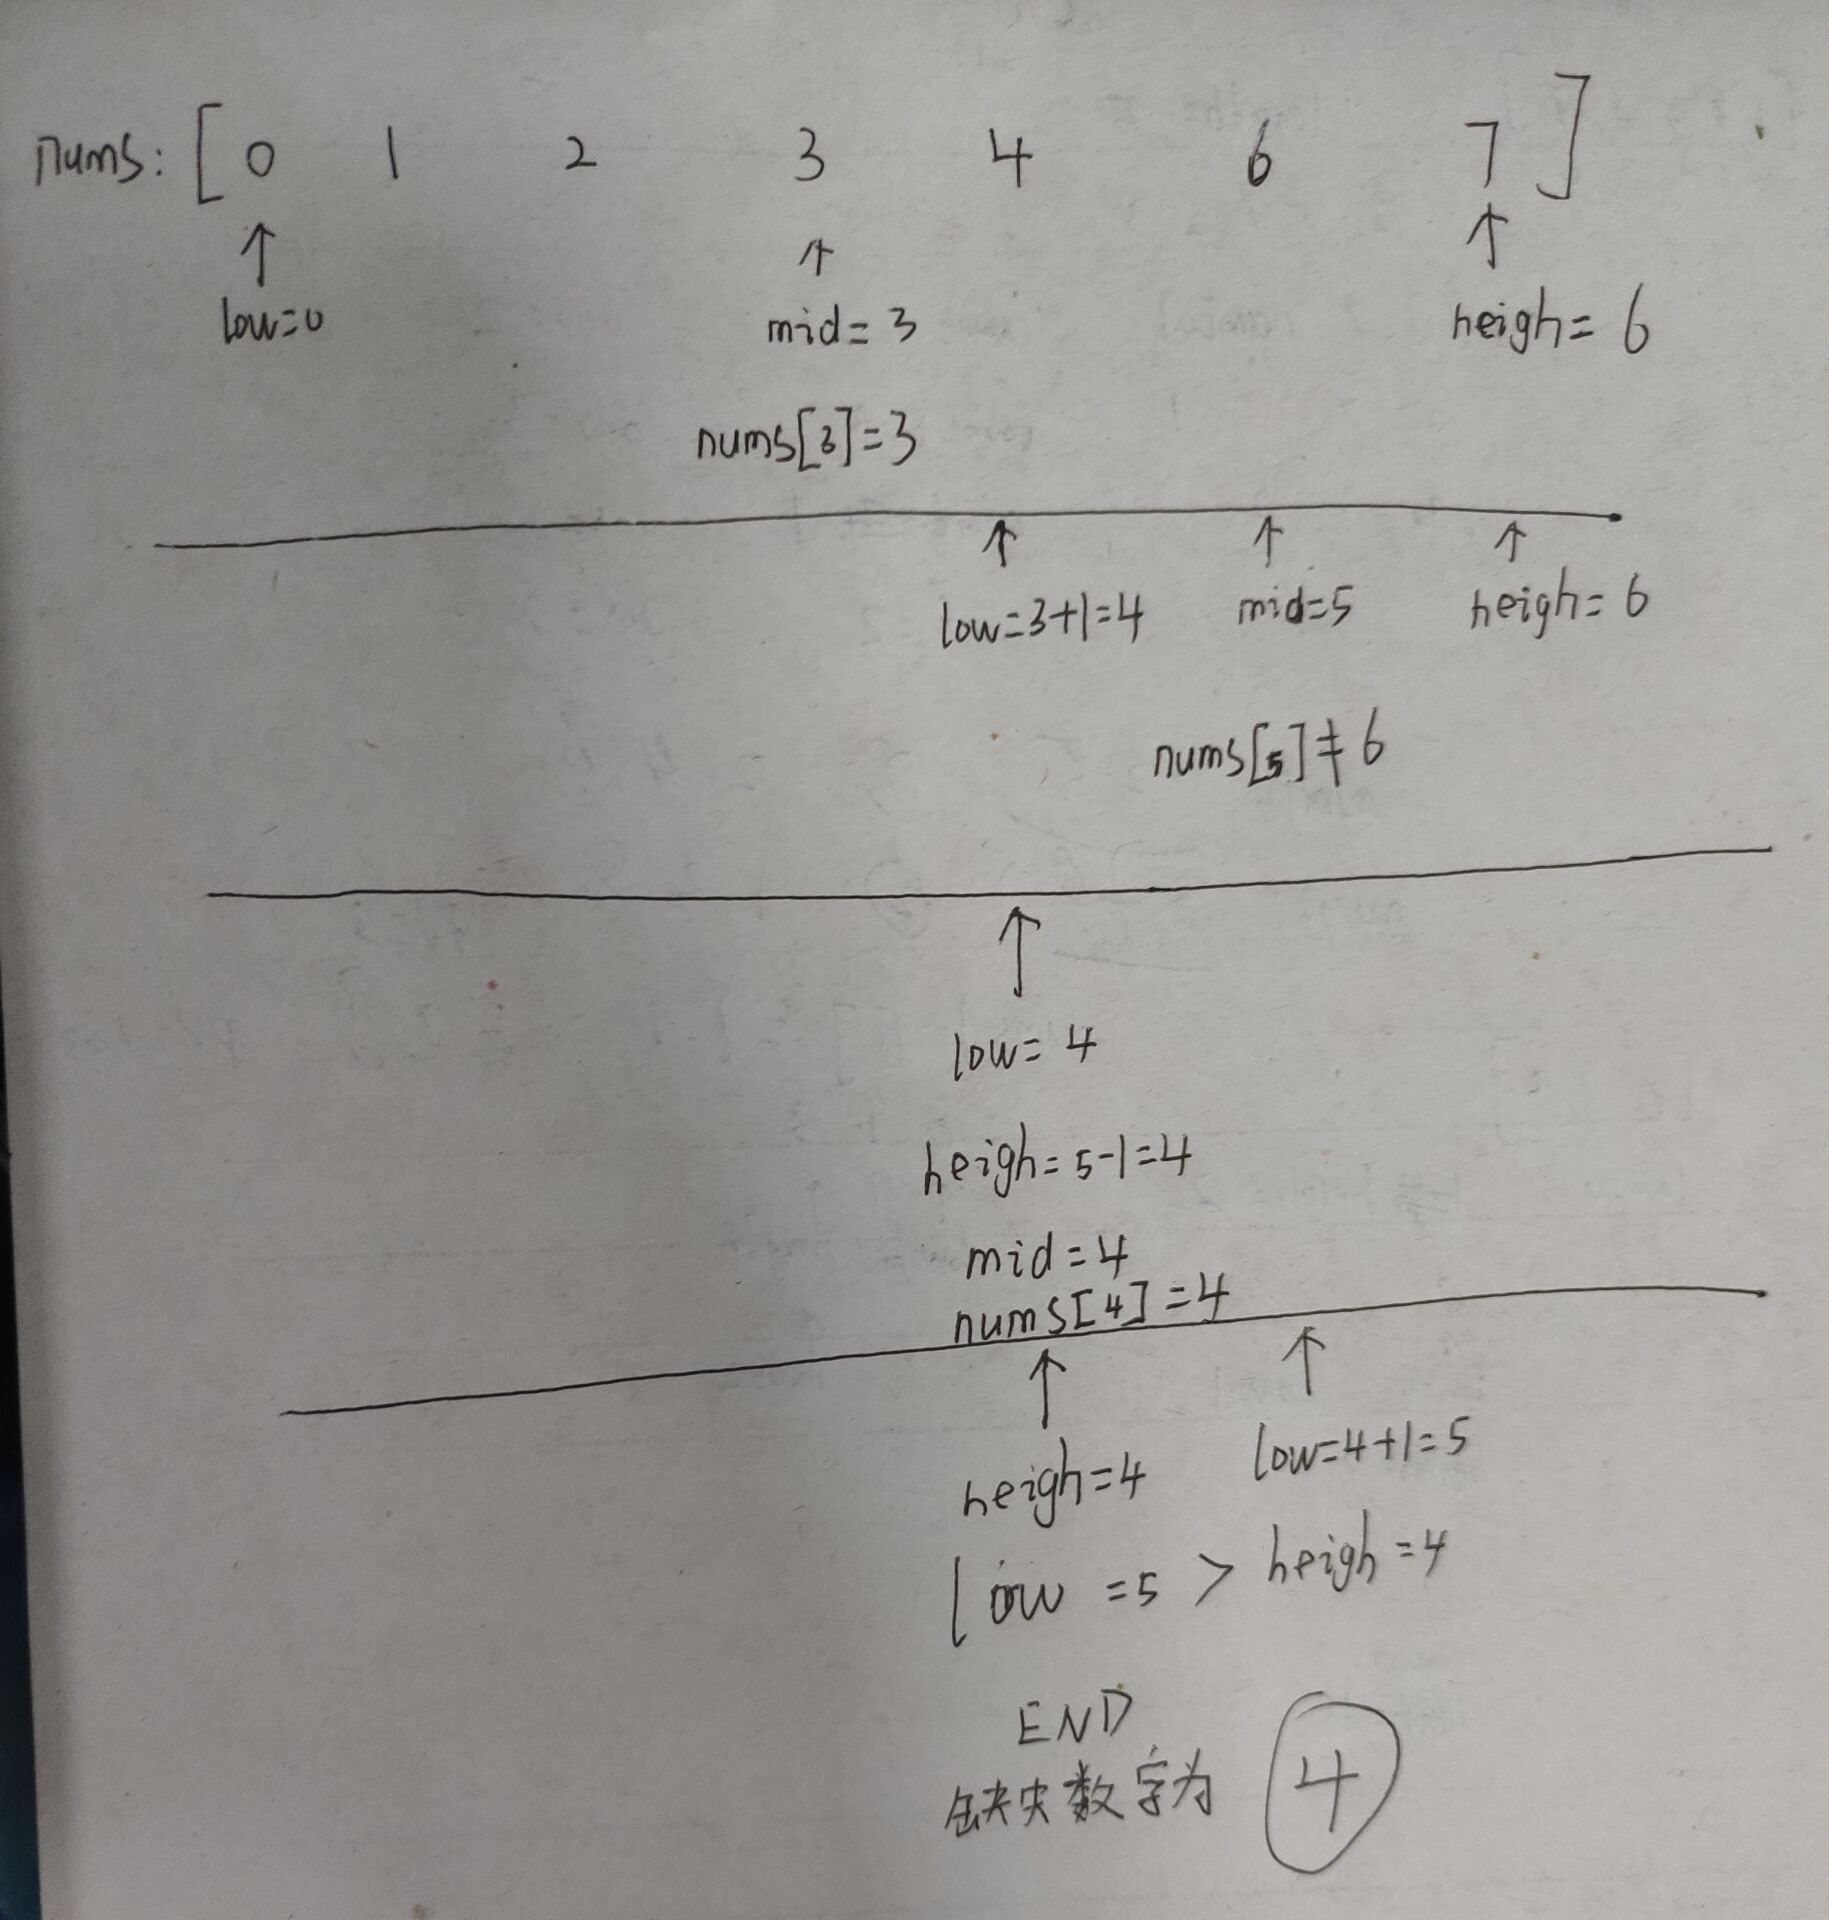 nums: [ 0 1 2 3 4 6 7 ]
↑ ↑ ↑
low=0 mid=3 heigh=6
nums[3]=3
↑ ↑ ↑
low=3+1=4 mid=5 heigh=6
nums[5]≠6
↑
low=4
heigh=5-1=4
mid=4
nums[4]=4
↑ ↑
heigh=4 low=4+1=5
low =5 > heigh =4
END
缺失数字为 4